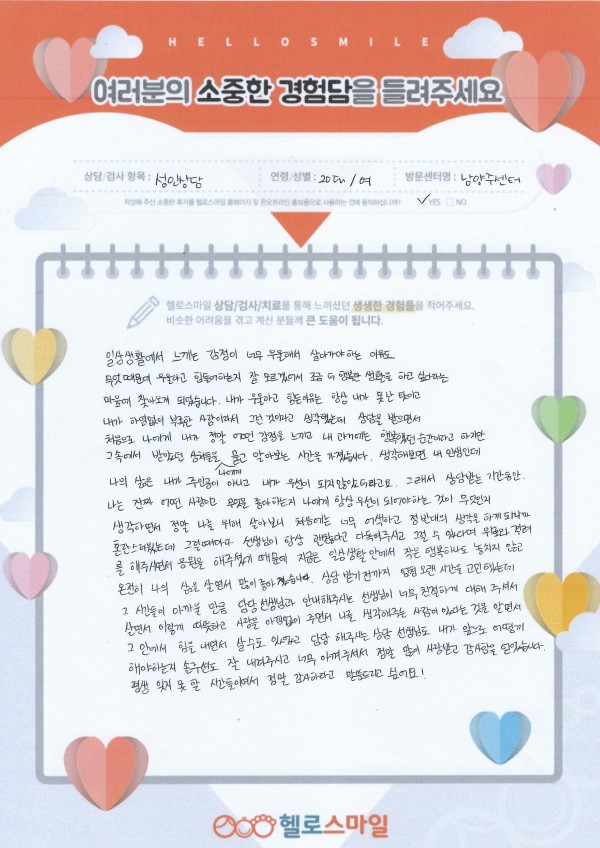 HELLOSMILE
여러분의 소중한 경험담을 들려주세요
상담/검사 항목 : 성인상담 연령/성별 : 20대 / 여 방문센터명 : 남양주센터
작성해 주신 소중한 후기를 헬로스마일 홈페이지 및 온오프라인 홍보용으로 사용하는 것에 동의하십니까? ✓YES □NO
헬로스마일 상담/검사/치료를 통해 느끼셨던 생생한 경험들을 적어주세요.
비슷한 어려움을 겪고 계신 분들께 큰 도움이 됩니다.
일상생활에서 느끼는 감정이 너무 우울해서 살아가야하는 이유도
무엇때문에 우울하고 힘들어하는지 잘 모르겠어서 조금 더 행복한 생활을 하고 싶다라는
마음에 찾아오게 되었습니다. 내가 우울하고 힘든이유는 항상 내가 못난 탓이고
내가 하염없이 부족한 사람이라서 그런 것이라고 생각했는데 상담을 받으면서
처음으로 나에게 내가 정말 어떤 감정을 느끼고 내 과거에는 행복했던 순간이라고 하지만
그속에서 받았던 상처들을 나에게 묻고 알아보는 시간을 가졌습니다. 생각해보면 내 인생인데
나의 삶은 내가 주인공이 아니고 내가 우선이 되지 않았더라고요. 그래서 상담받는 기간동안
나는 진짜 어떤 사람이고 무엇을 좋아하는지 나에게 항상 우선이 되어야하는 것이 무엇인지
생각하면서 정말 나를 위해 살아보니 처음에는 너무 어색하고 정반대의 생각을 하게 되니까
혼란스러웠는데 그럴때마다 선생님이 항상 괜찮다고 다독여주시고 그럴 수 있다며 위로와 격려
를 해주시면서 응원을 해주셨기 때문에 지금은 일상생활 안에서 작은 행복하나도 놓치지 않고
온전히 나의 삶을 살면서 많이 좋아졌습니다. 상담 받기 전까지 엄청 오랜 시간을 고민했는데
그 시간들이 아까울 만큼 담당 선생님과 안내해주시는 선생님이 너무 친절하게 대해 주셔서
살면서 이렇게 따뜻하고 사랑을 아낌없이 주면서 나를 생각해주는 사람이 있다는 것을 알면서
그 안에서 힘을 내면서 살 수도 있었고 담당 해주시는 상담 선생님도 내가 앞으로 어떻게
해야하는지 솔루션도 잘 내려주시고 너무 아껴주셔서 정말 많이 사랑받고 감사함을 얻었습니다.
평생 잊지 못 할 시간들이여서 정말 감사하다고 말씀드리고 싶어요!
헬로스마일